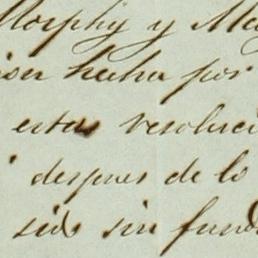 Morphy y Ma
hecha por
estas resoluci
despues de lo
sido sin fund